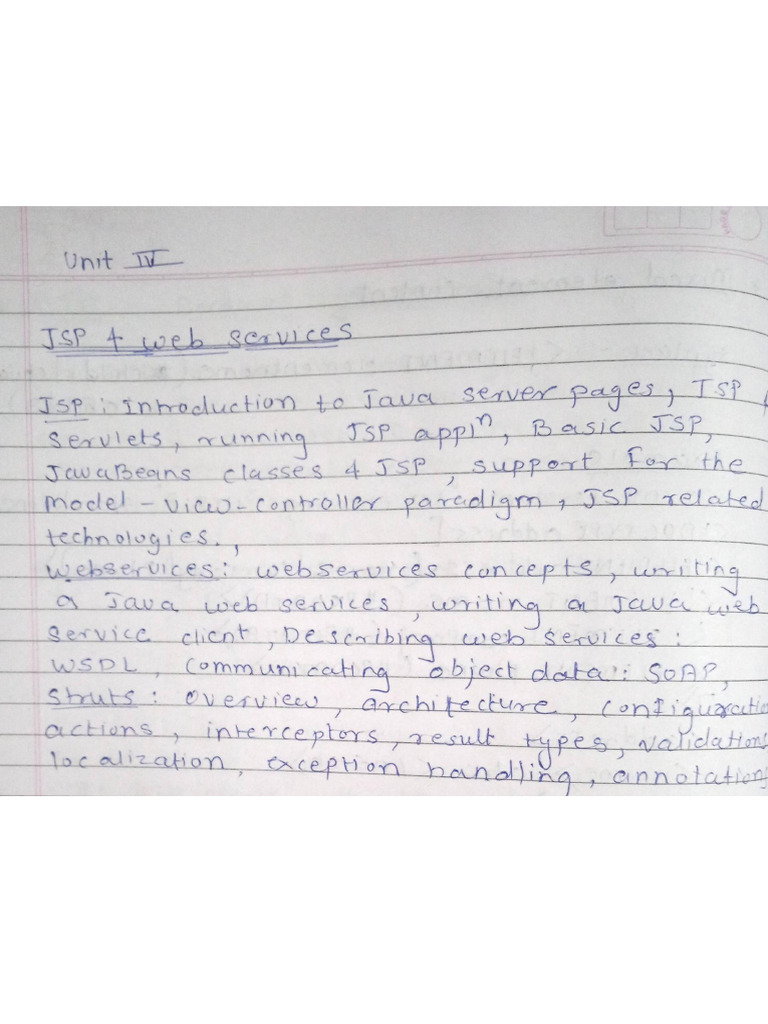 Unit IV
JSP & web services
JSP : Introduction to Java server pages, JSP &
Servlets, running JSP appln, Basic JSP,
JavaBeans classes & JSP, support for the
model-view-controller paradigm, JSP related
technologies.,
Webservices : webservices concepts, writing
a Java web services, writing a Java web
service client, Describing web services :
WSDL, communicating object data : SOAP,
Struts : overview, architecture, configuratio
actions, interceptors, result types, validations
localization, exception handling, annotations